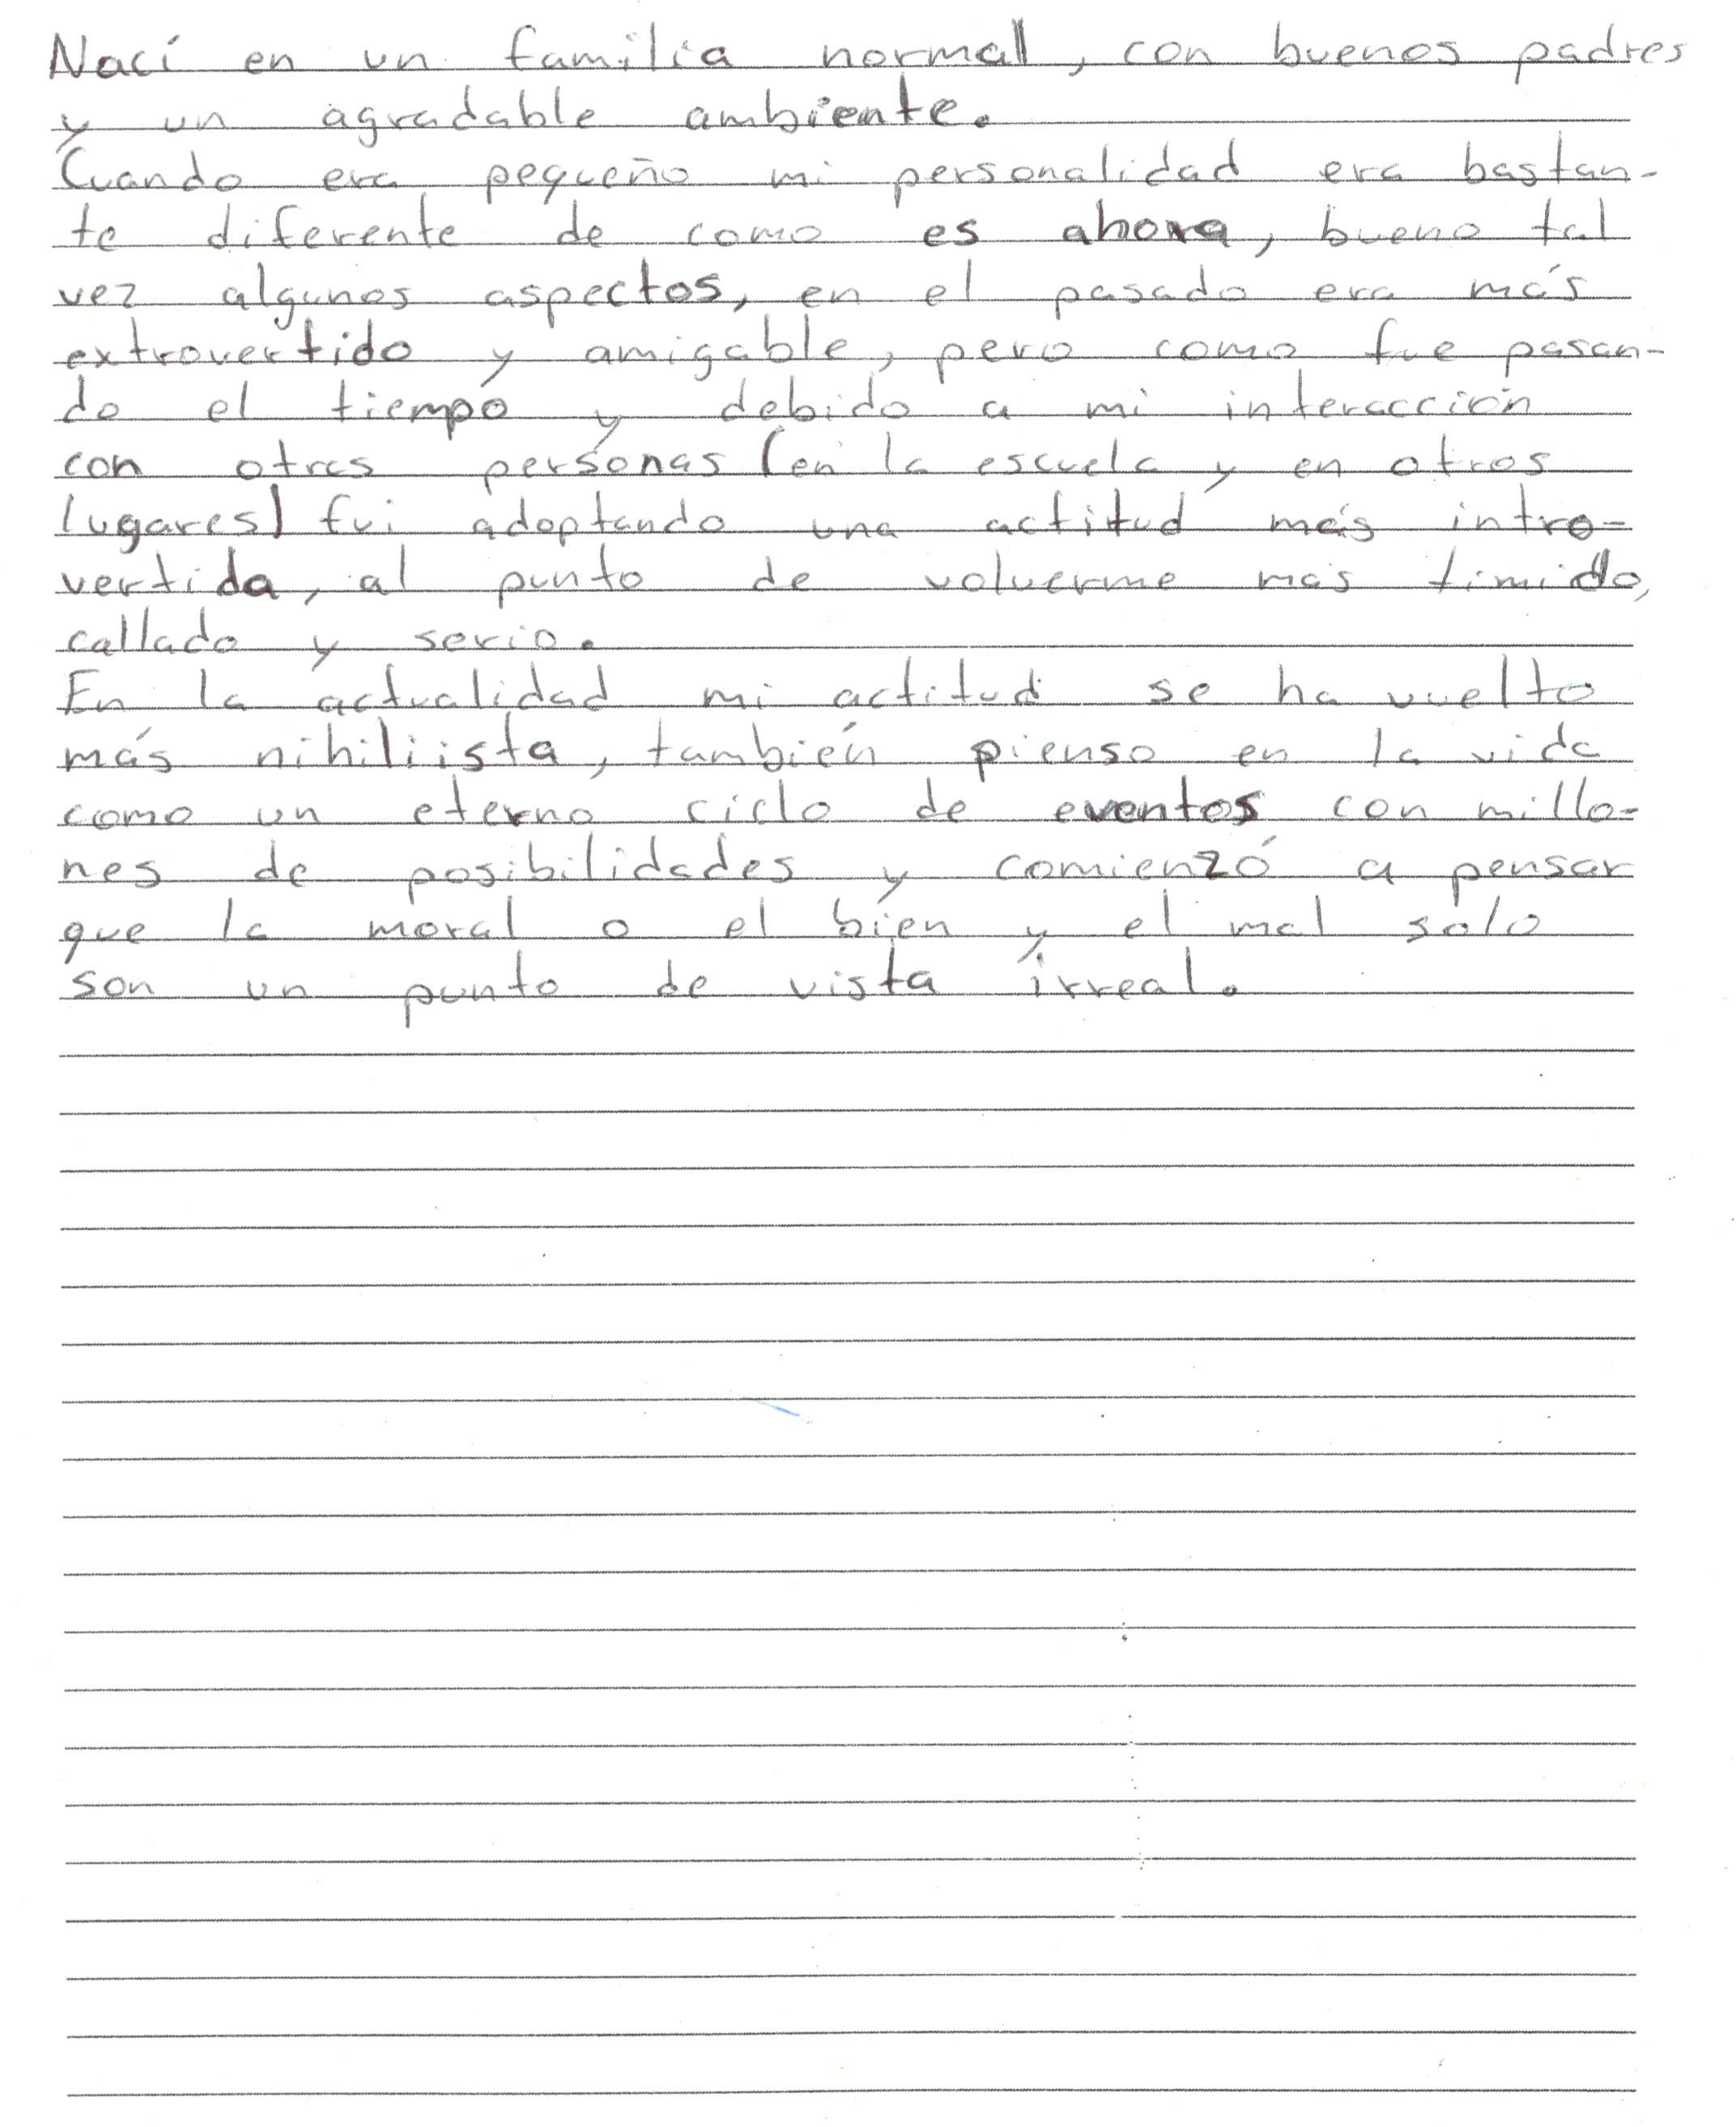 Nací en un familia normal, con buenos padres
y un agradable ambiente.
Cuando era pequeño mi personalidad era bastan-
te diferente de como es ahora, bueno tal
vez algunos aspectos, en el pasado era más
extrovertido y amigable, pero como fue pasan-
do el tiempo y debido a mi interacción
con otras personas (en la escuela y en otros
lugares) fui adoptando una actitud más intro-
vertida, al punto de volverme más timido,
callado y serio.
En la actualidad mi actitud se ha vuelto
más nihiliista, también pienso en la vida
como un eterno ciclo de eventos con millo-
nes de posibilidades y comienzó a pensar
que la moral o el bien y el mal solo
son un punto de vista irreal.